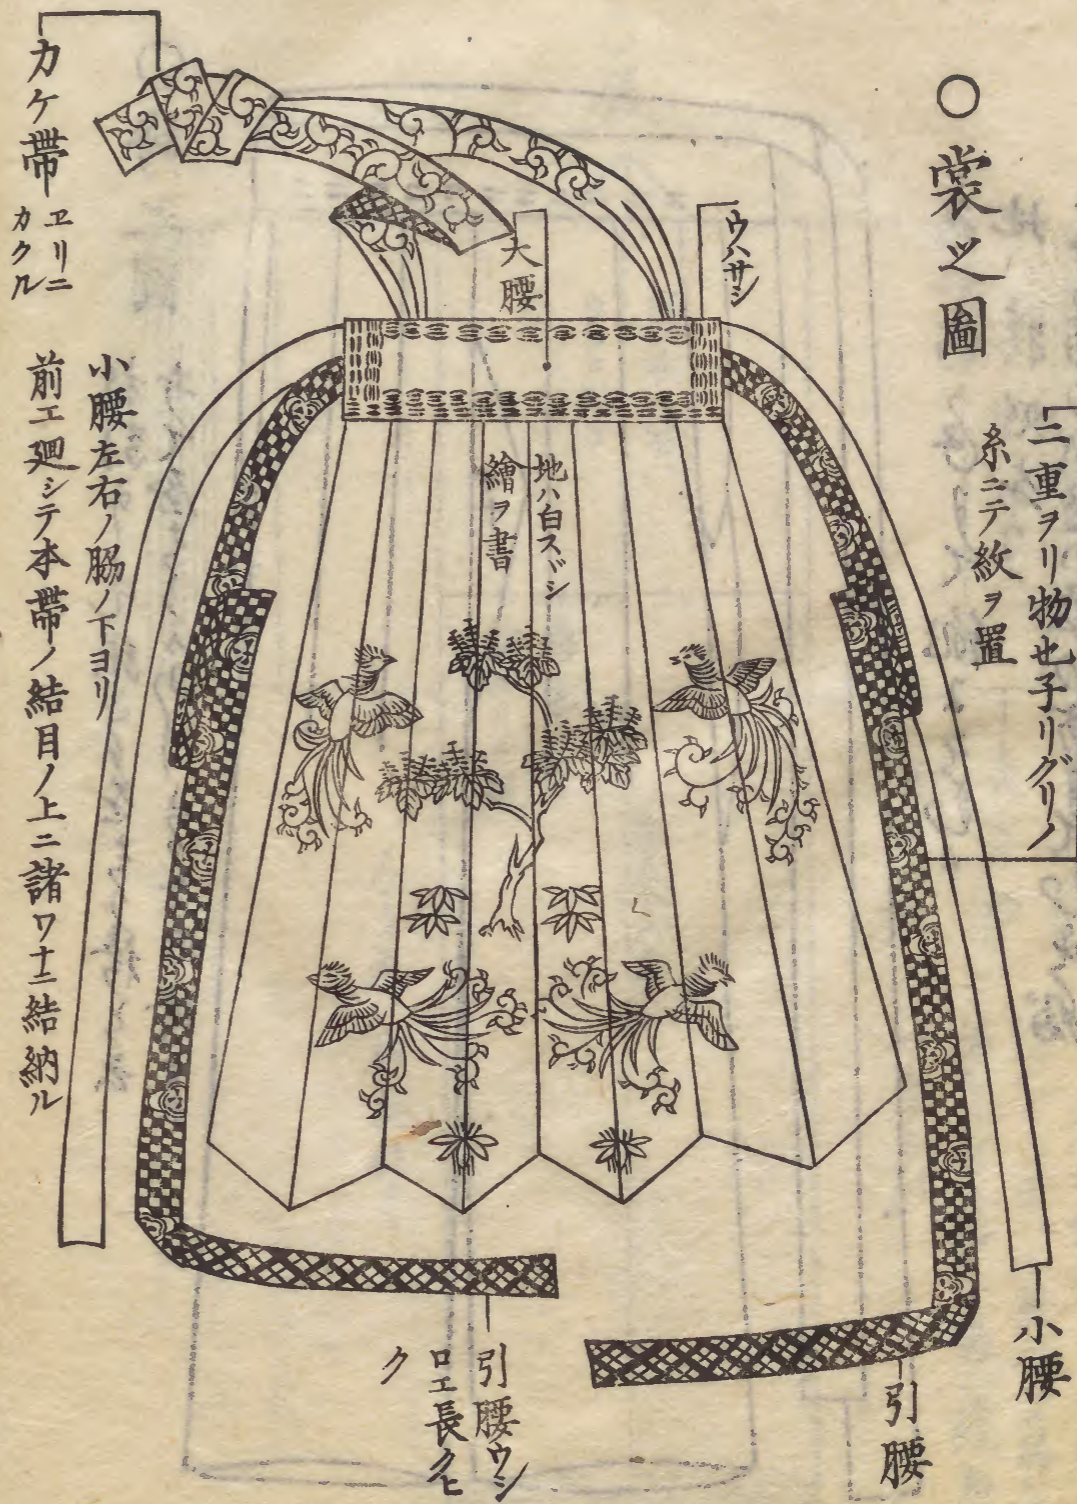 ○裳之圖
二重ヲリ物也子リグリノ
糸ニテ紋ヲ置
ウハサシ
大腰
地ハ白スヾシ
繪ヲ書
カケ帯
ヱリニ
カクル
小腰左右ノ脇ノ下ヨリ
前エ廻シテ本帯ノ結目ノ上ニ諸ワナニ結納ル
小腰
引腰
引腰ウシ
ロエ長クヒ
ク